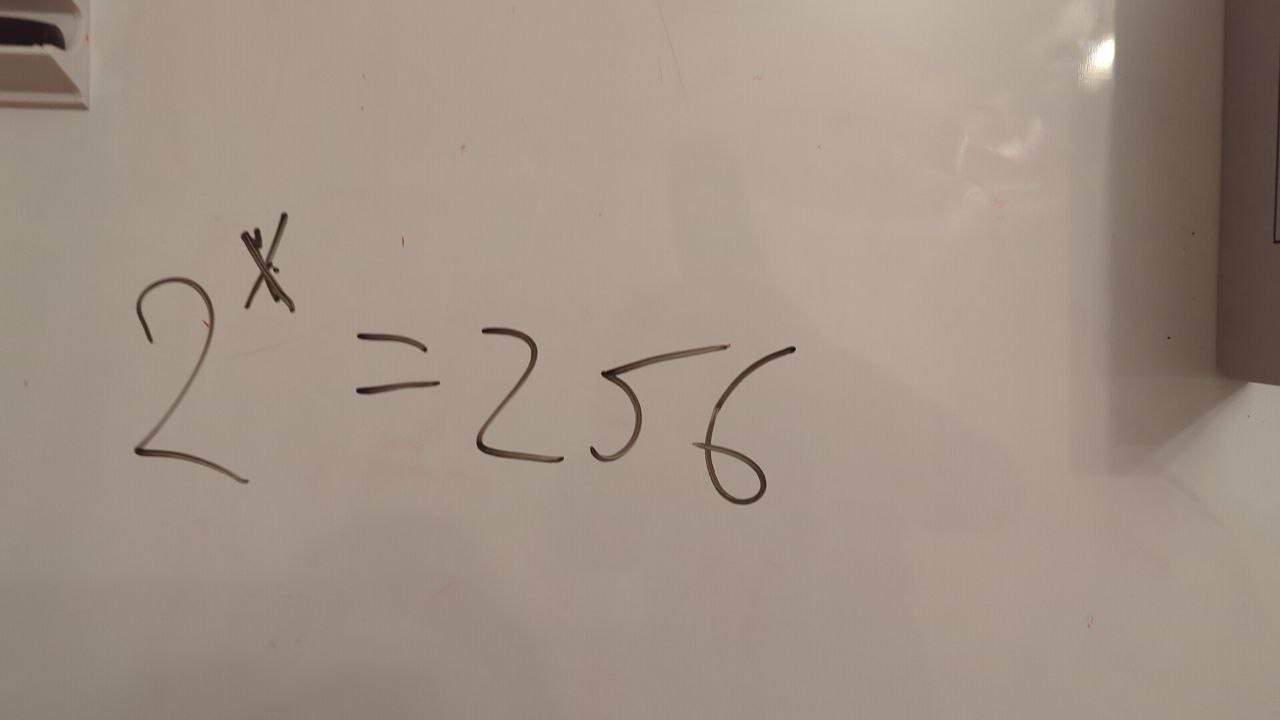 2ˣ = 256